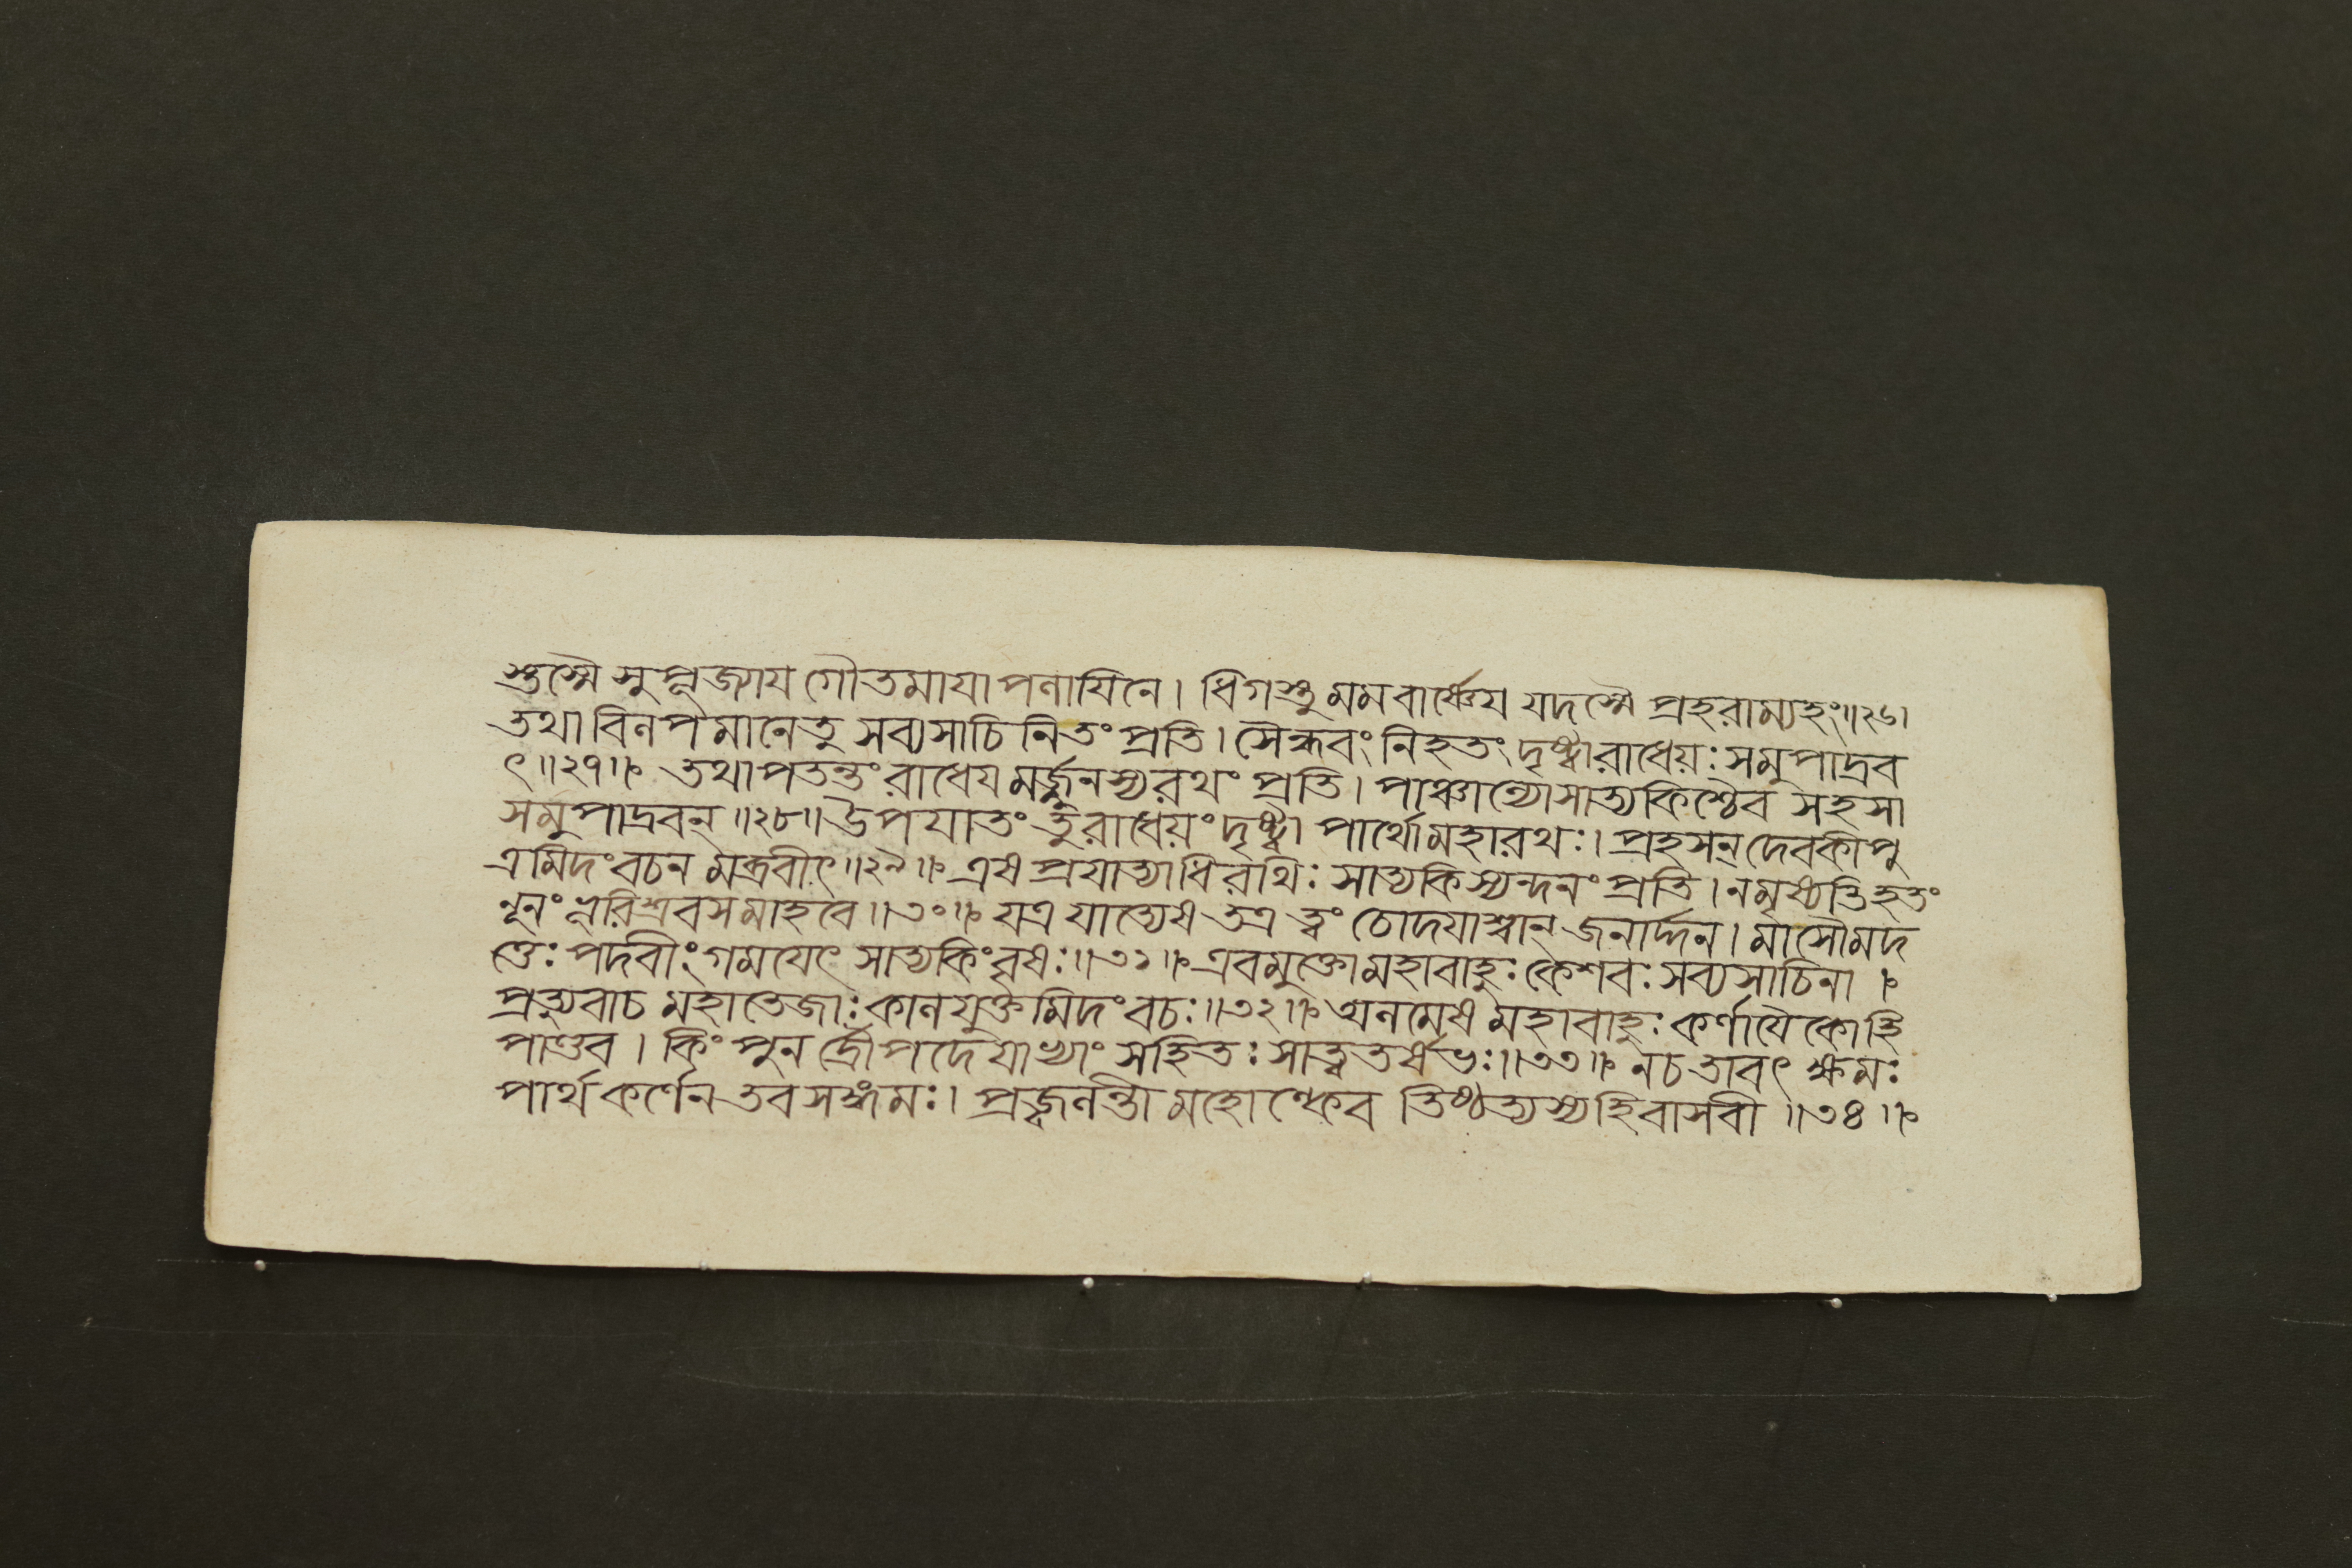 স্তুস্মৈ সুপূজ্যায গৌতমাযাপলাযিনে। ধিগস্তু মমবার্ষ্ণেয যদস্মৈ প্রহরাম্যহং॥২৬।
তথা বিলপমানেতু সব্যসাচিনিতং প্রতি। সৈন্ধবং নিহতং দৃষ্ট্বা রাধেয়ঃ সমুপাদ্রব
ৎ॥২৭॥ তথাপতন্তং রাধেযমর্জ্জুনস্যরথং প্রতি। পাঞ্চাল্যো সাত্যকিশ্চৈব সহসা
সমুপাদ্রবন্॥২৮॥ উপযাতং তু রাধেয়ং দৃষ্ট্বা পার্থো মহারথঃ। প্রহসন্ দেবকীপু
ত্রমিদং বচনমব্রবীৎ॥২৯॥ এষ প্রযাত্যাধিরথিঃ সাত্যকিস্যন্দনং প্রতি। নমৃষ্যতিহতং
নূনং ভূরিশ্রবসমাহবে॥৩০॥ যত্র যাত্যেষ তত্র ত্বং চোদযাশ্বান্ জনার্দ্দন। মাসৌমদ
ত্তেঃ পদবীং গমযেৎ সাত্যকিং বৃষঃ॥৩১॥ এবমুক্তো মহাবাহুঃ কেশবঃ সব্যসাচিনা।
প্রত্যুবাচ মহাতেজাঃ কালযুক্তমিদং বচঃ॥৩২॥ অলমেষ মহাবাহুঃ কর্ণাযৈকোহি
পাণ্ডব। কিং পুন র্দ্রৌপদেযাভ্যাং সহিতঃ সাত্বতর্ষভঃ॥৩৩॥ নচ তাবৎ ক্ষমঃ
পার্থ কর্ণেন তব সঙ্গমঃ। প্রজ্বলন্তী মহোল্কেব তিষ্ঠত্যস্যহি বাসবী॥৩৪॥